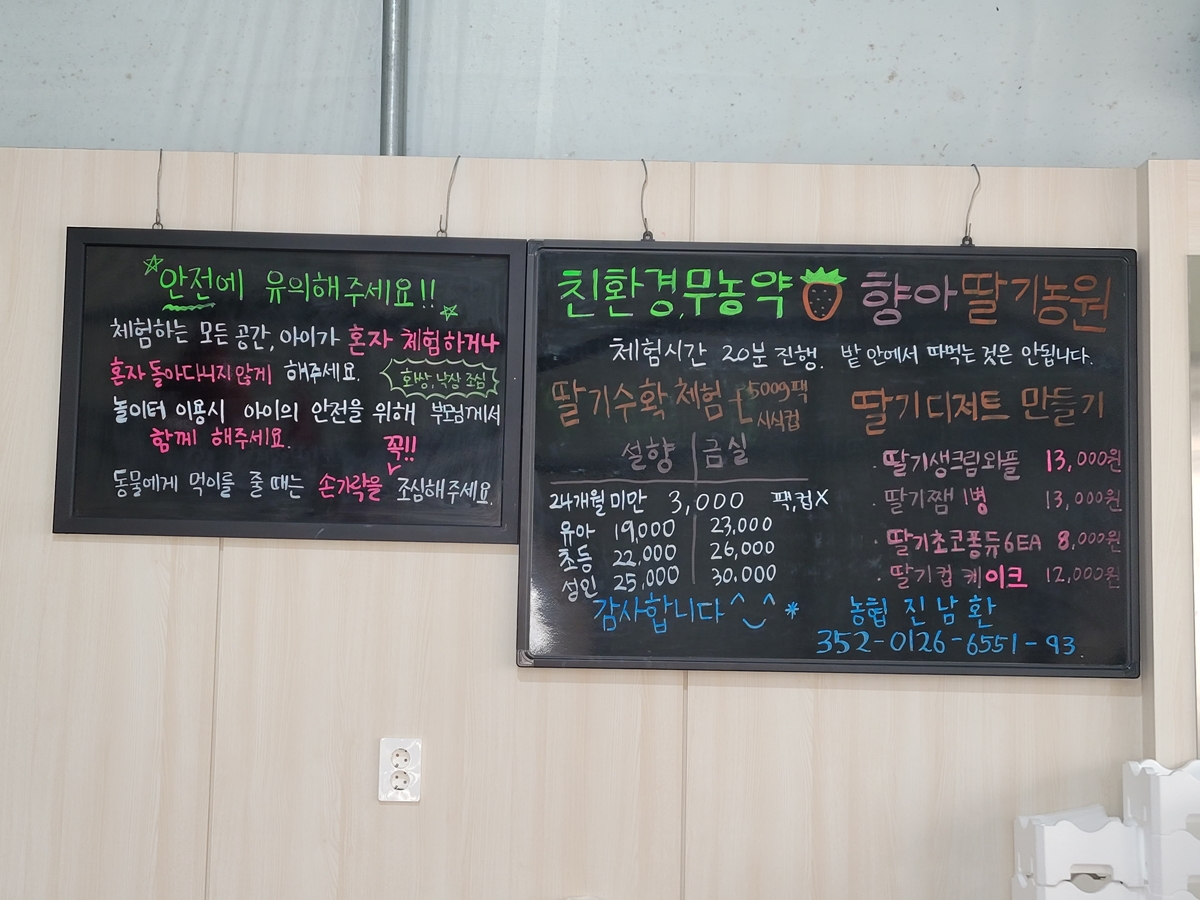 안전에 유의해주세요!!
체험하는 모든 공간, 아이가 혼자 체험하거나
혼자 돌아다니지 않게 해주세요.
화상, 낙상 조심
놀이터 이용시 아이의 안전을 위해 부모님께서
함께 해주세요.
꼭!!
동물에게 먹이를 줄 때는 손가락을 조심해주세요.
친환경,무농약 향아딸기농원
체험시간 20분 진행. 밭 안에서 따먹는 것은 안됩니다.
딸기수확 체험
500g팩
시식컵
설향 금실
24개월 미만 3,000 팩,컵X
유아 19,000 23,000
초등 22,000 26,000
성인 25,000 30,000
감사합니다^‿^*
딸기디저트 만들기
· 딸기생크림와플 13,000원
· 딸기쨈 1병 13,000원
· 딸기초코퐁듀6EA 8,000원
· 딸기컵케이크 12,000원
농협 진남환
352-0126-6551-93.